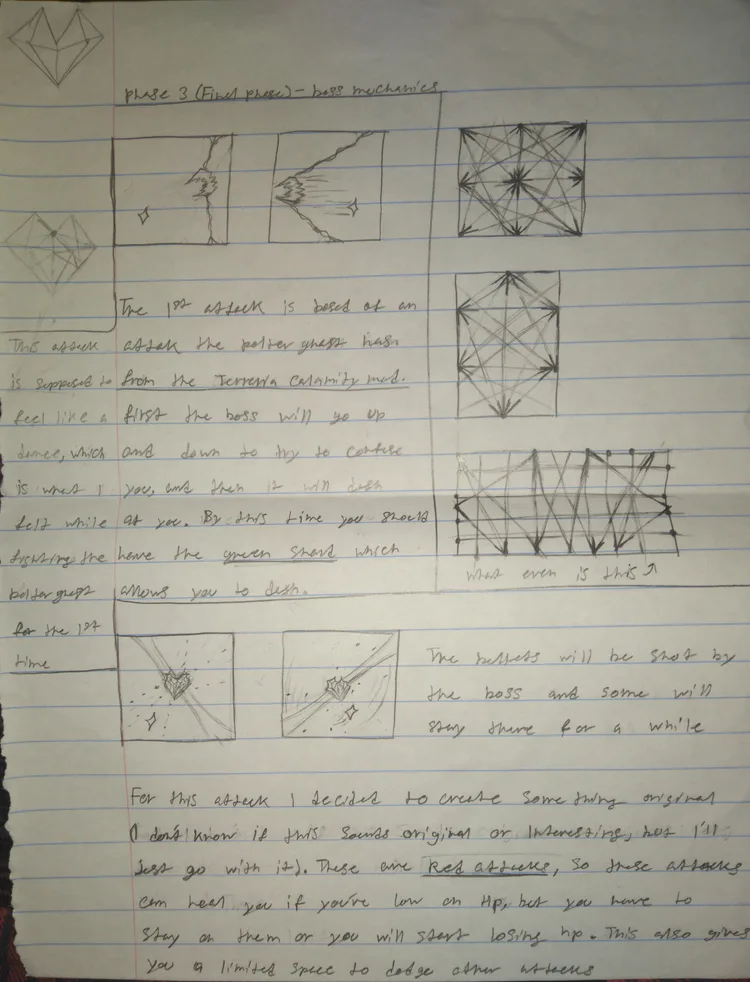 Phase 3 (Final phase) - boss mechanics
The 1st attack is based of an
attak the polter ghast has
from the Terreria Calamity mod.
first the boss will go up
and down to try to confuse
you, and then it will dash
at you. By this time you should
have the green shard which
allows you to dash.
This attack
is supposed to
feel like a
dance, which
is what I
felt while
fighting the
polterghast
for the 1st
time
what even is this ↗
The bullets will be shot by
the boss and some will
stay there for a while
For this attack I decided to create something original
(I don't know if this sounds original or interesting, but I'll
Just go with it). These are Red attacks, so these attacks
can heal you if you're low on Hp, but you have to
stay on them or you will start losing hp. This also gives
you a limited space to dodge other attacks